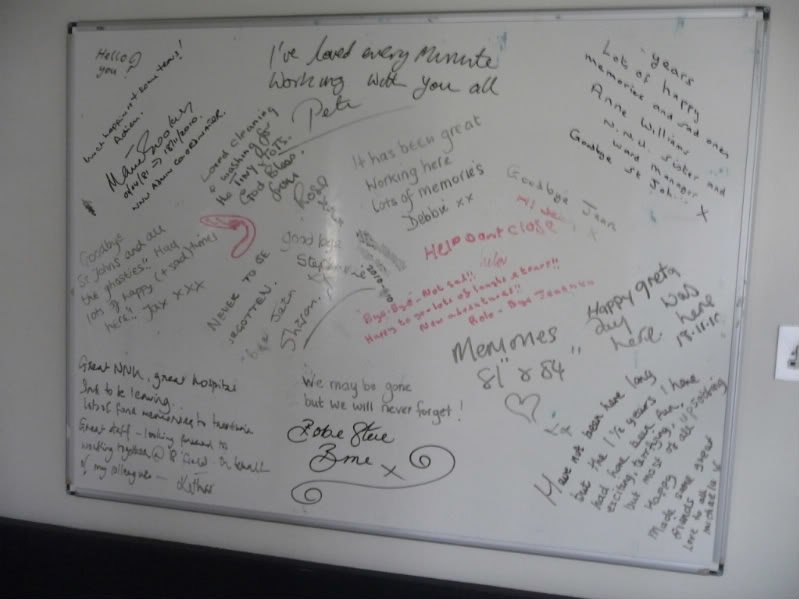 Hello
you
I've loved every Minute
Working with you all
Pete
Much happiness + some tears!
18/11/2010.
NNU ADMIN COORDINATOR.
Loved cleaning
+ washing for
the TINY TOTS.
God Bless.
from
Rose
It has been great
Working here
Lots of memories
Debbie xx
years
Lots of happy
memories and sad ones
Anne Williams
N.N.U. Sister and
ward manager
Goodbye St Joh...
X
Goodbye Jean
Goodbye
St Johns and all
the ghosties!! Had
lots of happy (+ sad) times
here!! Jax xxx
NEVER TO BE
FORGOTTEN.
goodbye
Bye Jain
Sharon.
Help dont close
Bye-Bye-Not sad!!
Happy to go-lots of laughs & tears!!
New adventures!!
Memories
81" & 84"
Happy
day
here
was
here
18.11.10
Great NNU, great hospital
Sad to be leaving.
Lots of fond memories to treasure
Great staff - looking forward to
working together @ B'field. On behalf
of my colleagues -
We may be gone
but we will never forget!
Steve
X
Have not been here long
but the 1½ years I have
had have been fun,
exciting, terrifying, upsetting
but most of all
Happy.
Made some great
friends
Love to all
Michaela x